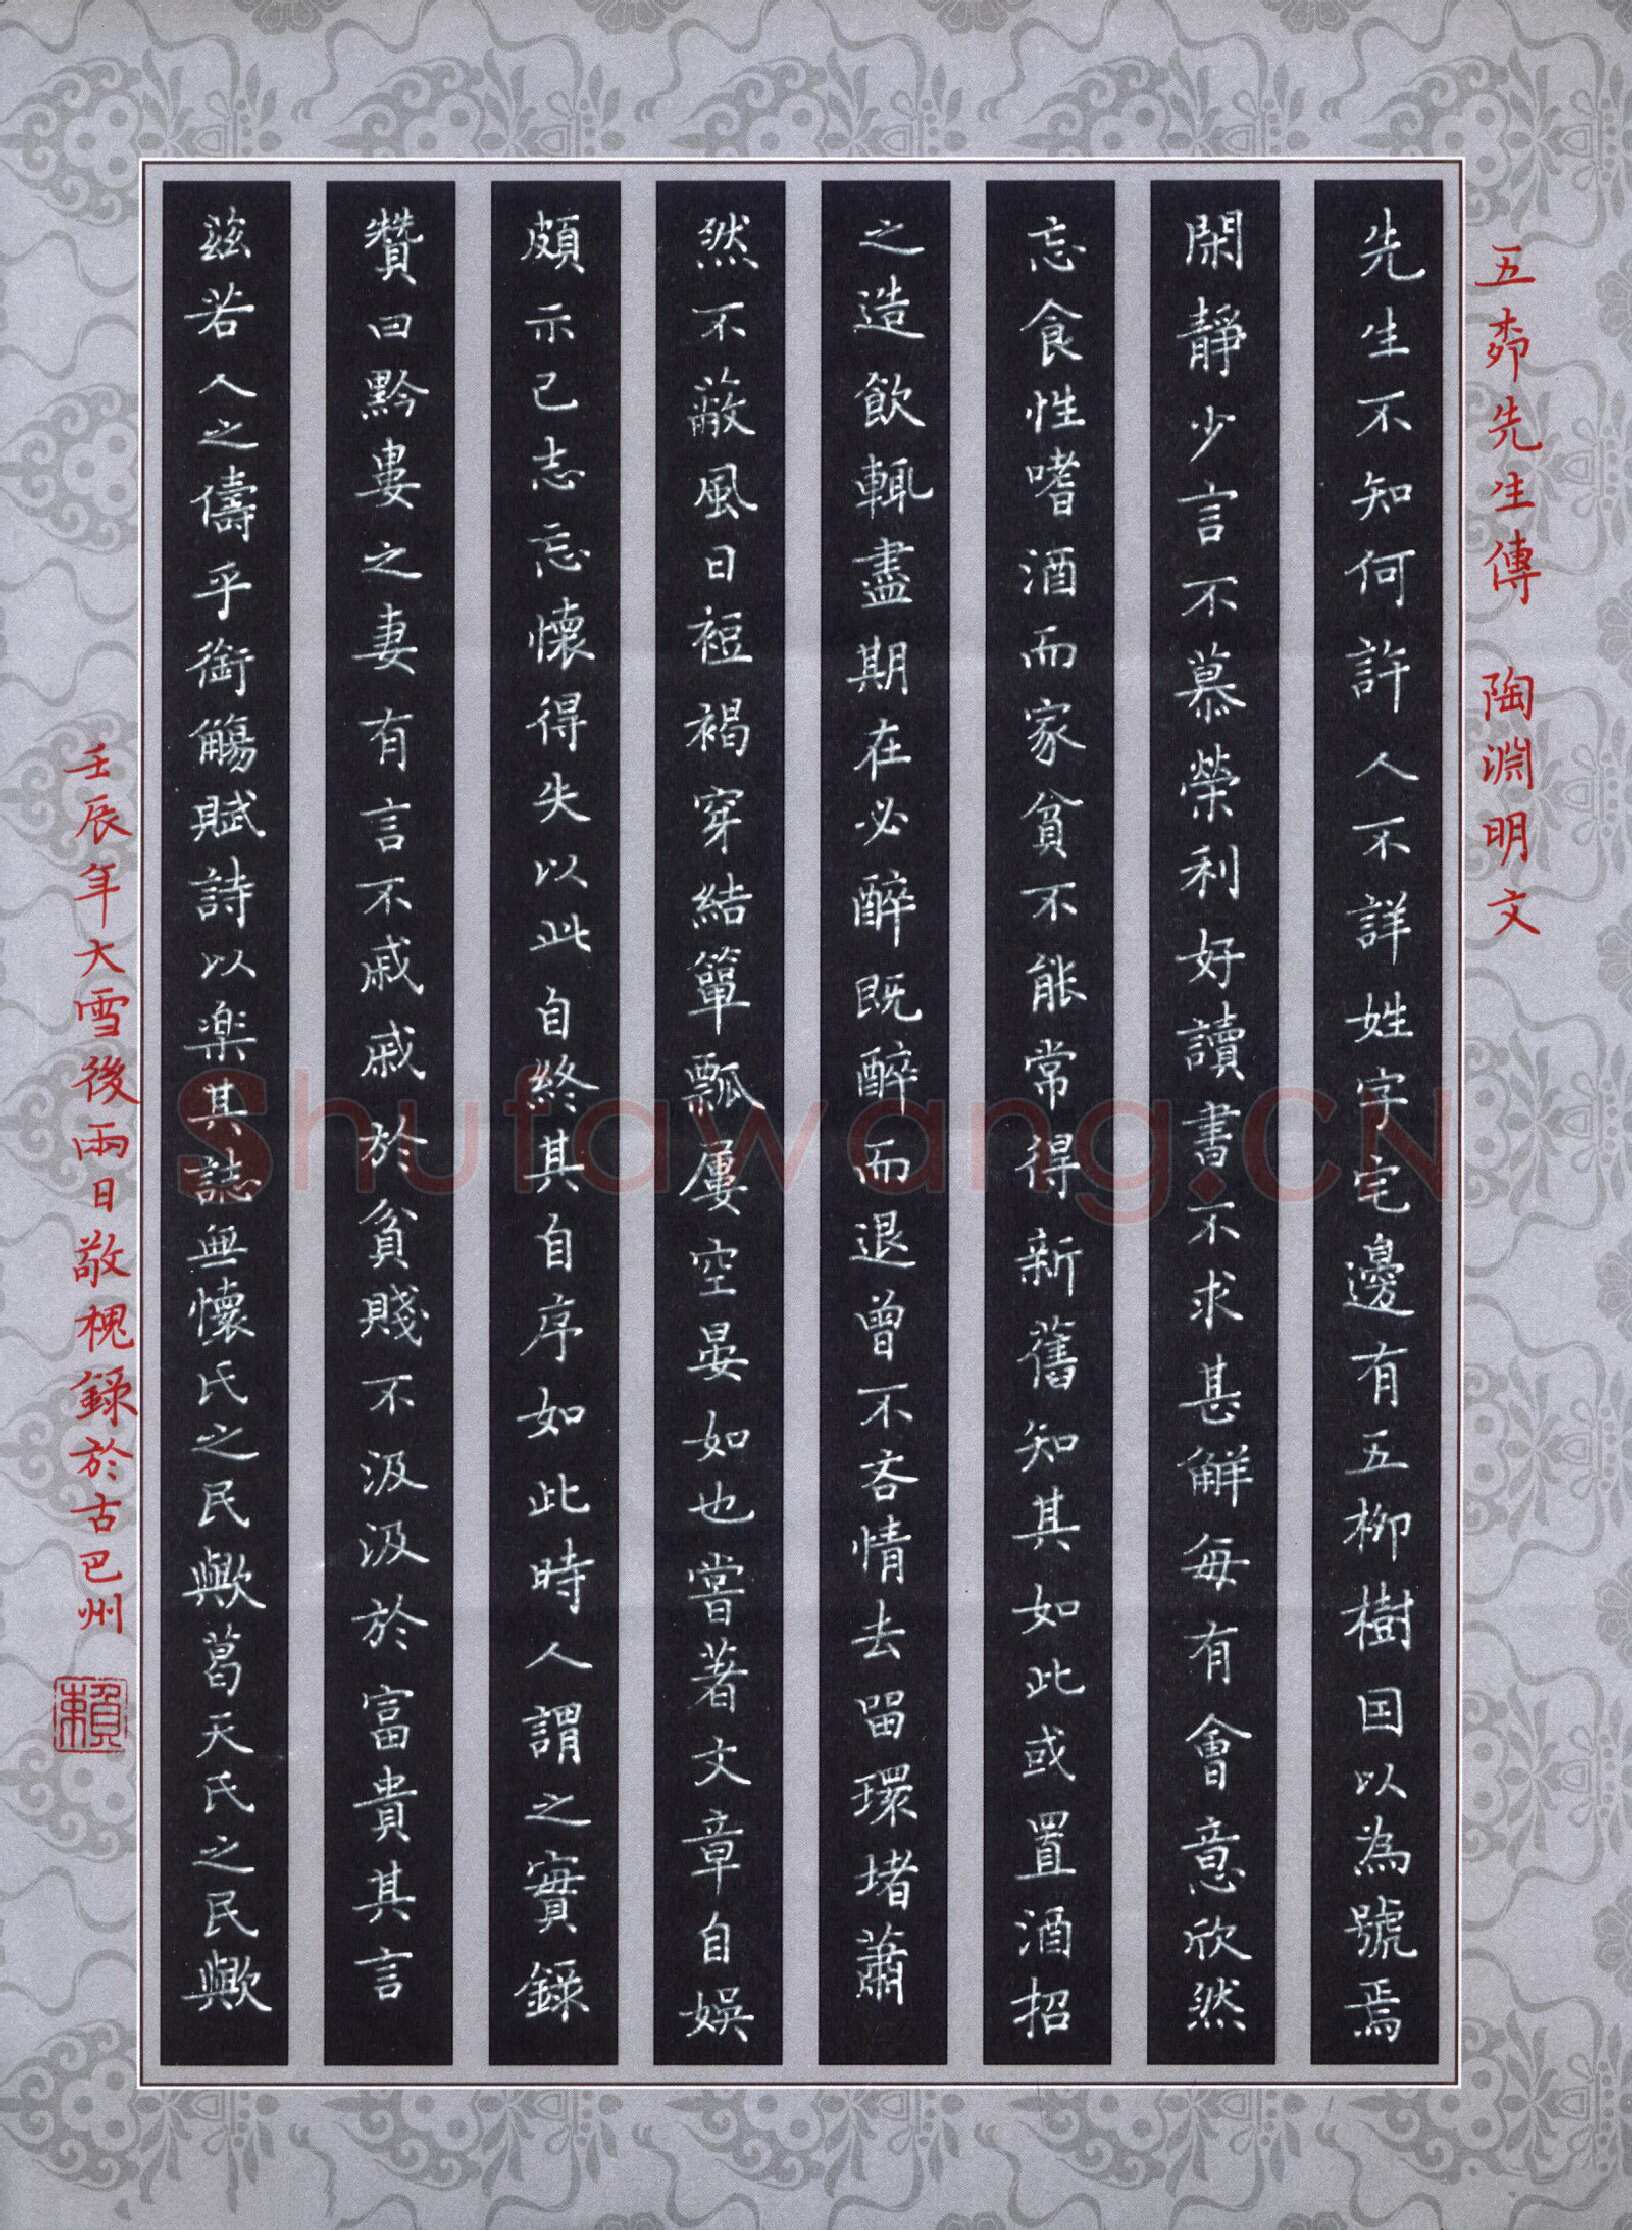 五桺先生傳 陶淵明文
先生不知何許人不詳姓字宅邊有五柳樹因以為號焉
閑靜少言不慕榮利好讀書不求甚解每有會意欣然
忘食性嗜酒而家貧不能常得新舊知其如此或置酒招
之造飲輒盡期在必醉既醉而退曾不吝情去留環堵蕭
然不蔽風日裋褐穿結簞瓢屢空晏如也嘗著文章自娛
頗示己志忘懷得失以此自終其自序如此時人謂之實錄
贊曰黔婁之妻有言不戚戚於貧賤不汲汲於富貴其言
茲若人之儔乎銜觴賦詩以楽其誌無懷氏之民歟葛天氏之民歟
壬辰年大雪後兩日敬槐錄於古巴州
賴
Shufawang.CN